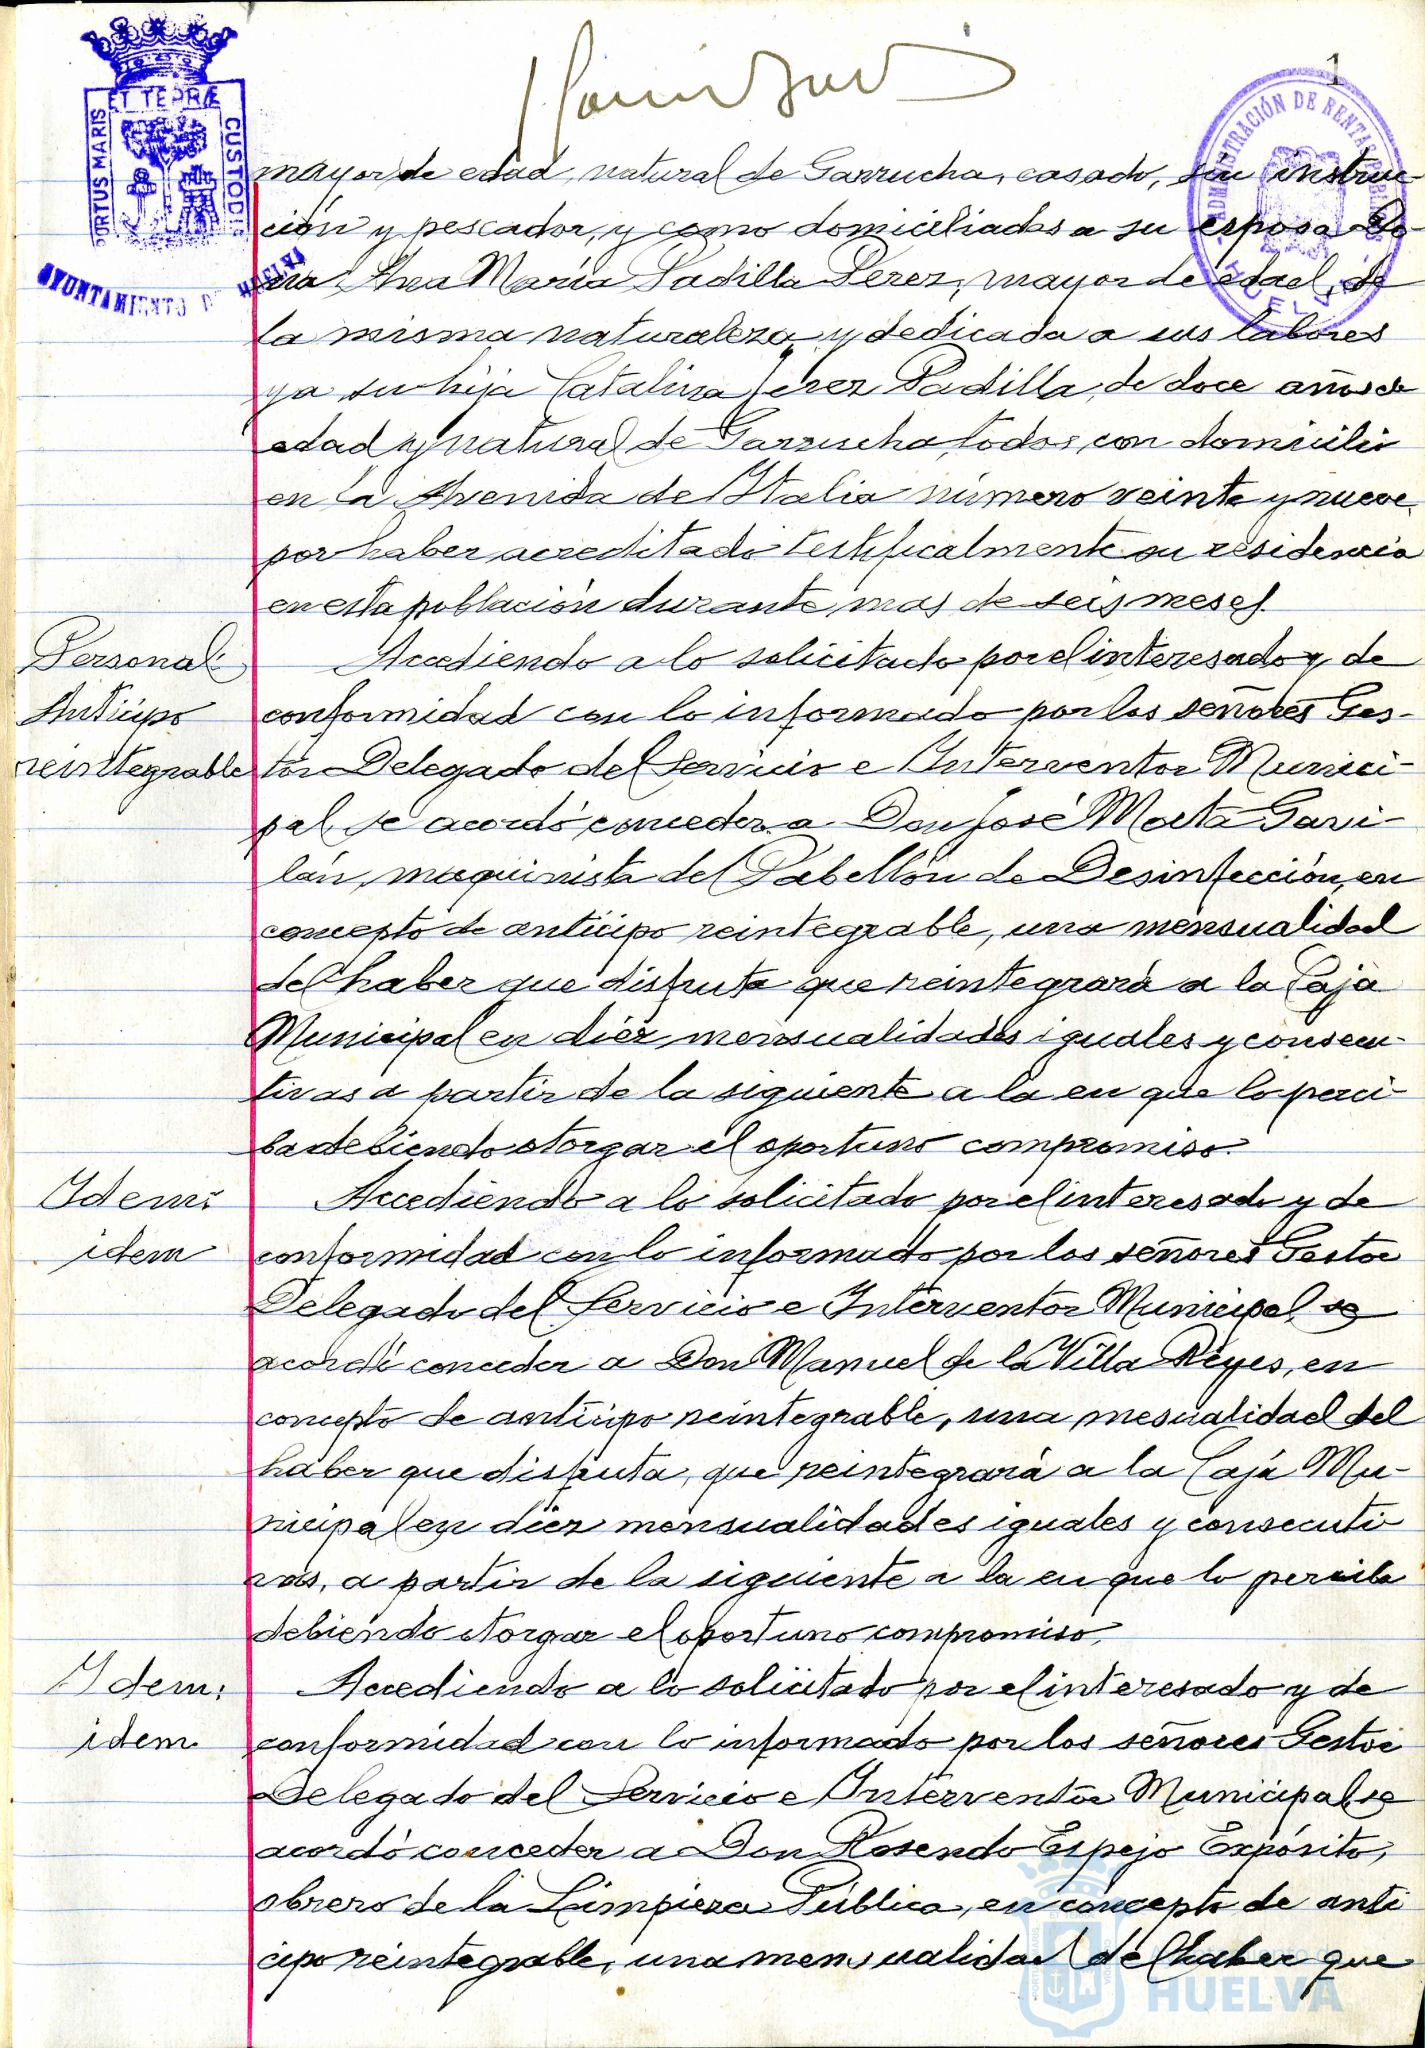 1
PORTUS MARIS
ET TERRÆ
CUSTODIA
AYUNTAMIENTO DE HUELVA
ADMINISTRACIÓN DE RENTAS PÚBLICAS
HUELVA
mayor de edad, natural de Garrucha, casado, sin instruc-
ción y pescador, y como domiciliados a su esposa Do-
ña Ana María Padilla Perez, mayor de edad, de
la misma naturaleza y dedicada a sus labores
y a su hija Catalina Jerez Padilla, de doce años de
edad y natural de Garrucha, todos con domicilio
en la Avenida de Italia número veinte y nueve,
por haber acreditado testificalmente su residencia
en esta población durante mas de seis meses.
Personal
Anticipo
reintegrable
Accediendo a lo solicitado por el interesado y de
conformidad con lo informado por los señores Ges-
tor Delegado del Servicio e Interventor Munici-
pal, se acordó conceder a Don José Marta Gavi-
lán, maquinista del Pabellón de Desinfección, en
concepto de anticipo reintegrable, una mensualidad
del haber que disfruta que reintegrará a la Caja
Municipal en diez mensualidades iguales y consecu-
tivas a partir de la siguiente a la en que lo perci-
ba debiendo otorgar el oportuno compromiso.
Idem:
idem
Accediendo a lo solicitado por el interesado y de
conformidad con lo informado por los señores Gestor
Delegado del Servicio e Interventor Municipal, se
acordó conceder a Don Manuel de la Villa Reyes, en
concepto de anticipo reintegrable, una mesualidad del
haber que disfruta, que reintegrará a la Caja Mu-
nicipal en diez mensualidades iguales y consecuti
vas, a partir de la siguiente a la en que lo perciba
debiendo otorgar el oportuno compromiso.
Idem:
idem.
Accediendo a lo solicitado por el interesado y de
conformidad con lo informado por los señores Gestor
Delegado del Servicio e Interventor Municipal, se
acordó conceder a Don Rosendo Espejo Expósito,
obrero de la Limpieza Pública, en concepto de anti
cipo reintegrable, una mensualidad del haber que
HUELVA